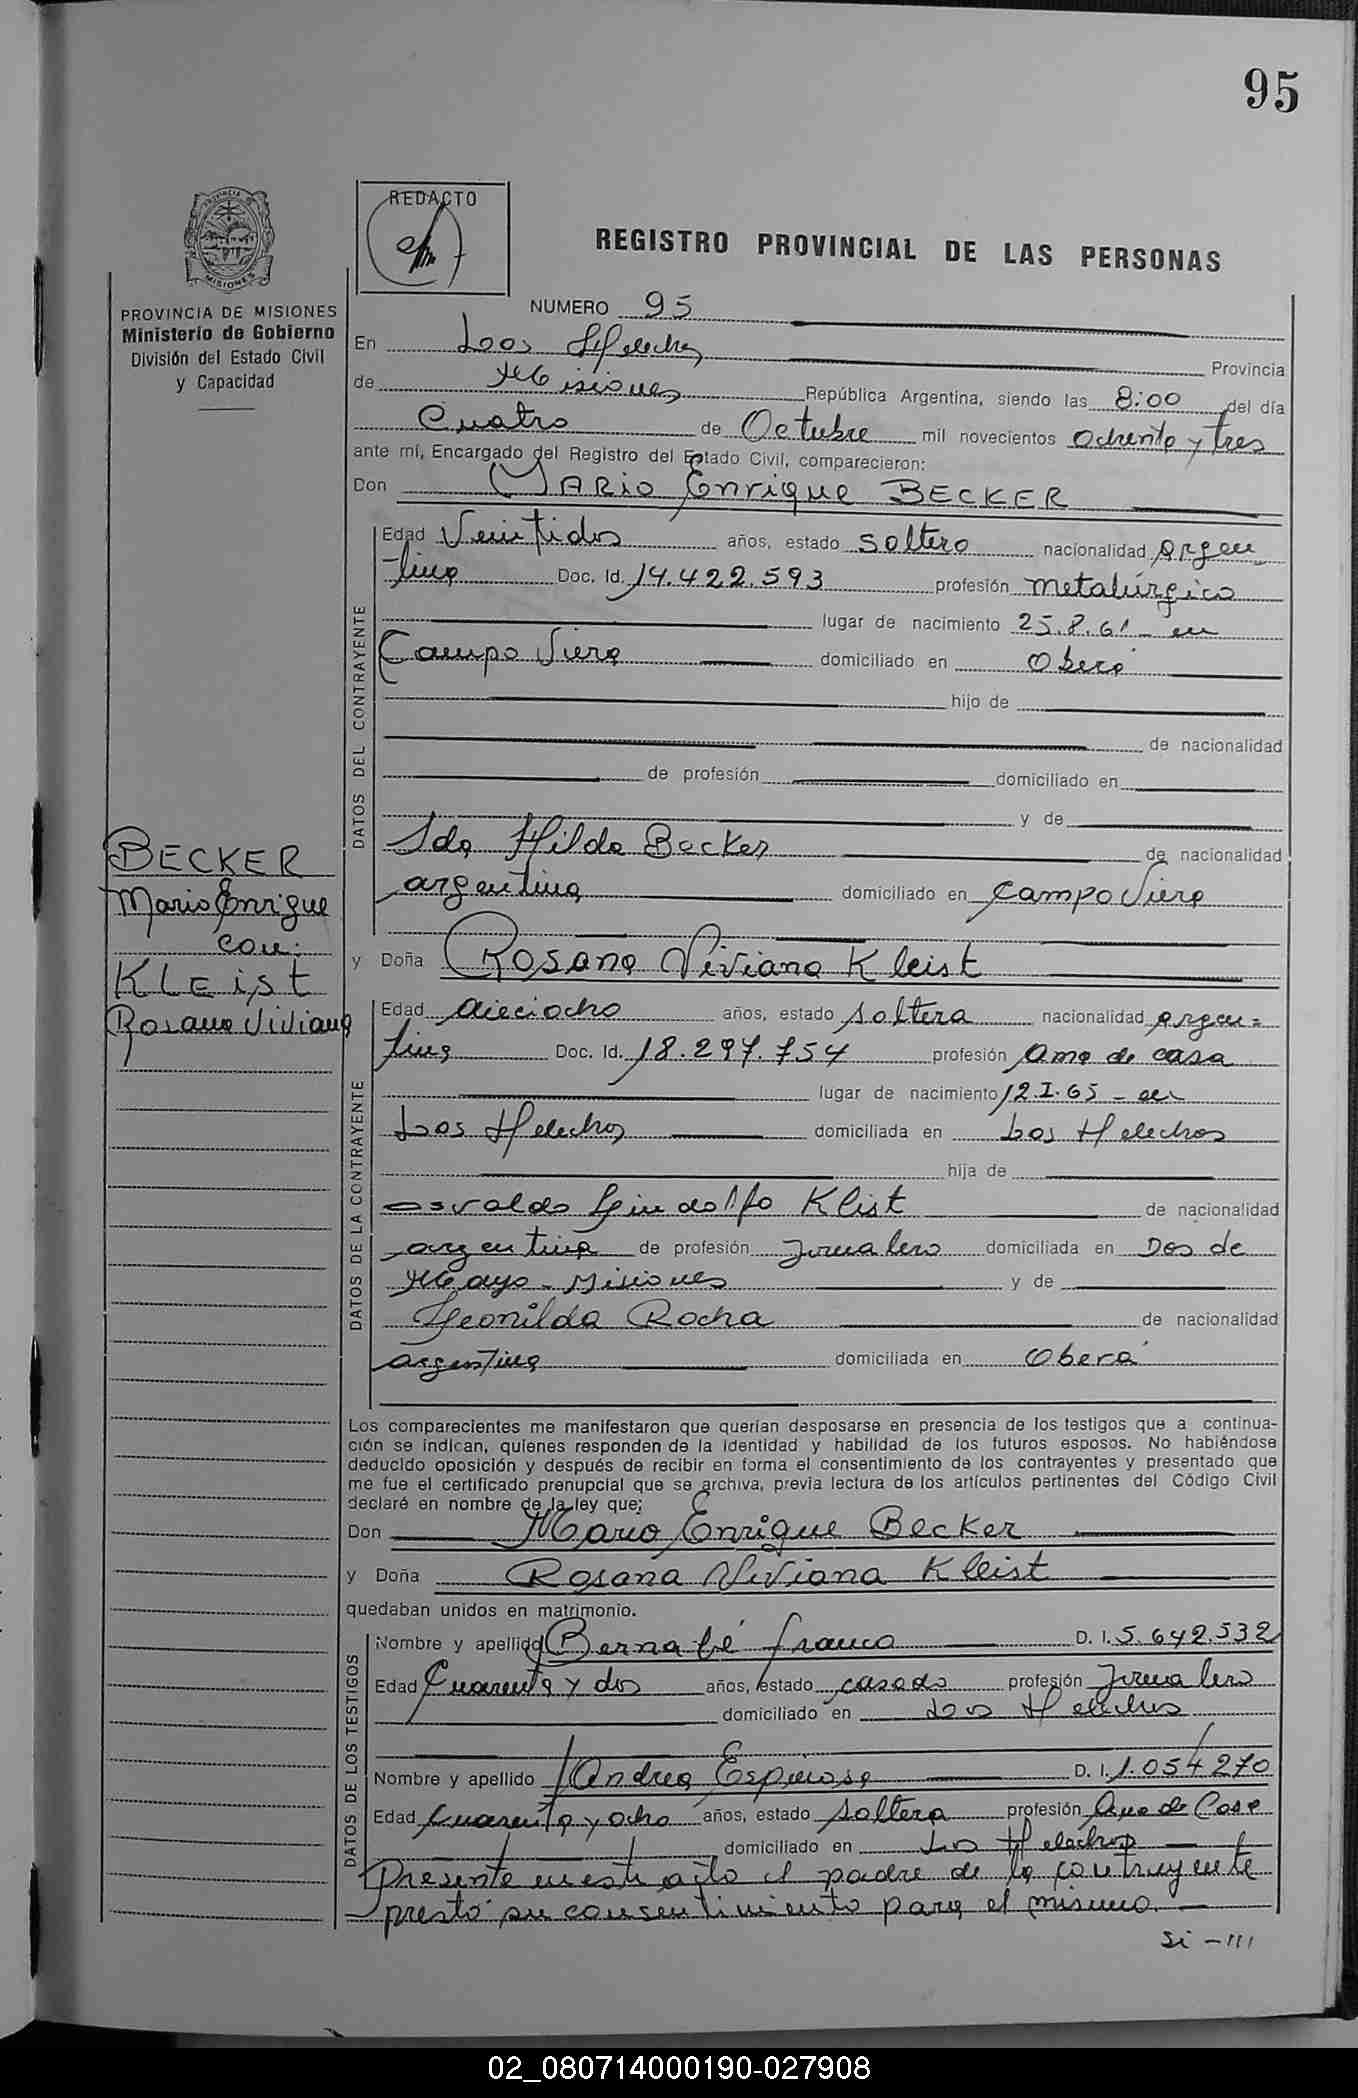 95
REDACTO
REGISTRO PROVINCIAL DE LAS PERSONAS
PROVINCIA DE MISIONES
Ministerio de Gobierno
División del Estado Civil
y Capacidad
NUMERO 95
En Loos Helechos Provincia
de Misiones República Argentina, siendo las 8:00 del día
Cuatro de Octubre mil novecientos ochenta y tres
ante mí, Encargado del Registro del Estado Civil, comparecieron:
Don Mario Enrique BECKER
DATOS DEL CONTRAYENTE
Edad Veintidos años, estado soltero nacionalidad argen
tina Doc. Id. 14.422.593 profesión metalúrgico
lugar de nacimiento 25.8.61 - en
Campo Viera domiciliado en Oberá
hijo de
de nacionalidad
de profesión domiciliado en
y de
Ida Hilda Becker de nacionalidad
argentina domiciliado en Campo Viera
BECKER
Mario Enrique
con:
KLEist
Rosana Viviana
y Doña Rosana Viviana Kleist
DATOS DE LA CONTRAYENTE
Edad dieciocho años, estado soltera nacionalidad argen=
tina Doc. Id. 18.297.754 profesión ama de casa
lugar de nacimiento 12.I.65 - en
Los Helechos domiciliada en Los Helechos
hija de
osvaldo Lindolfo Klist de nacionalidad
argentina de profesión Jornalero domiciliada en Dos de
Mayo - Misiones y de
Leonilda Rocha de nacionalidad
argentina domiciliada en Oberá
Los comparecientes me manifestaron que querían desposarse en presencia de los testigos que a continua-
ción se indican, quienes responden de la identidad y habilidad de los futuros esposos. No habiéndose
deducido oposición y después de recibir en forma el consentimiento de los contrayentes y presentado que
me fue el certificado prenupcial que se archiva, previa lectura de los artículos pertinentes del Código Civil
declaré en nombre de la ley que;
Don Mario Enrique Becker
y Doña Rosana Viviana Kleist
quedaban unidos en matrimonio.
DATOS DE LOS TESTIGOS
Nombre y apellido Bernabé franco D. I. 5.642.532
Edad Cuarenta y dos años, estado casado profesión Jornalero
domiciliado en Los Helechos
Nombre y apellido Andrea Espinosa D. I. 1.054270
Edad Cuarenta y ocho años, estado soltera profesión Ama de Casa
domiciliado en Los Helechos
Presente en este acto el padre de la contrayente
prestó su consentimiento para el mismo.
Si - 111
02_080714000190-027908